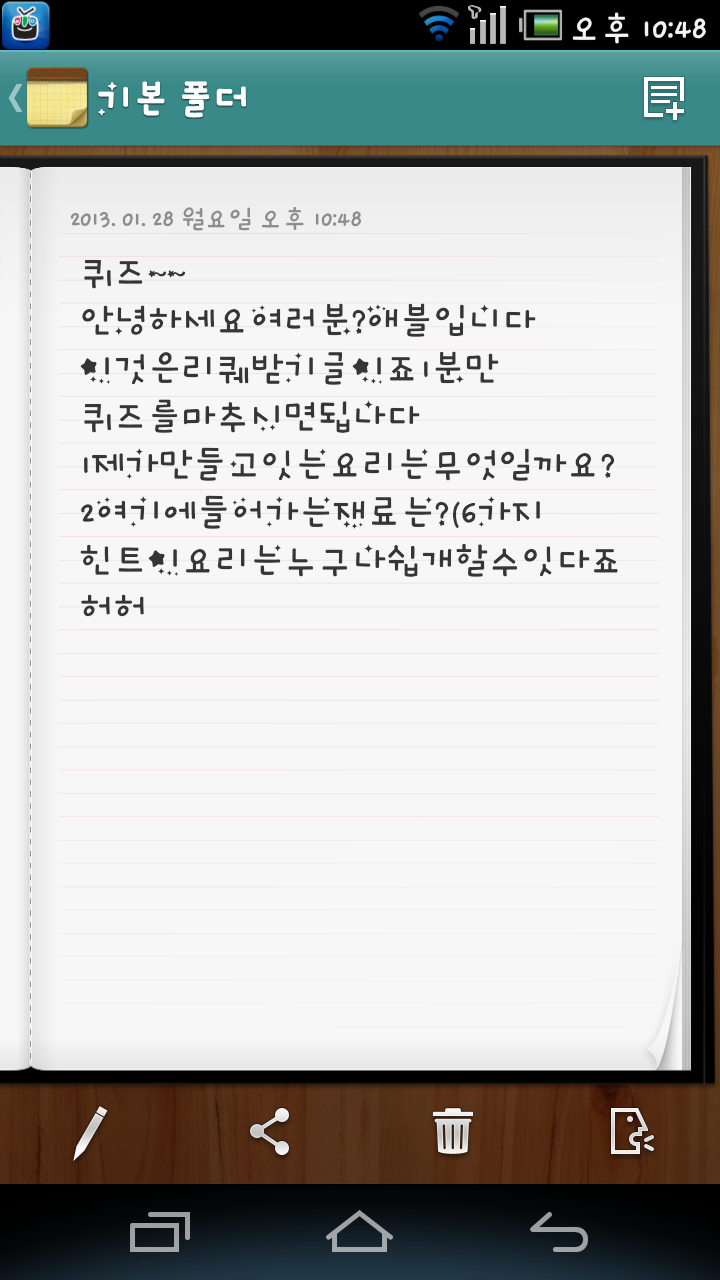 오후 10:48
기본 폴더
2013. 01. 28 월요일 오후 10:48
퀴즈~~
안녕하세요여러분?애블입니다
★이것은리퀘받기글★이죠1분만
퀴즈를마추시면됩나다
1제가만들고잇는요리는무엇일까요?
2여기에들어가는잴료는?(6가지
힌트★이요리는누구나쉽개할수잇다죠
허허